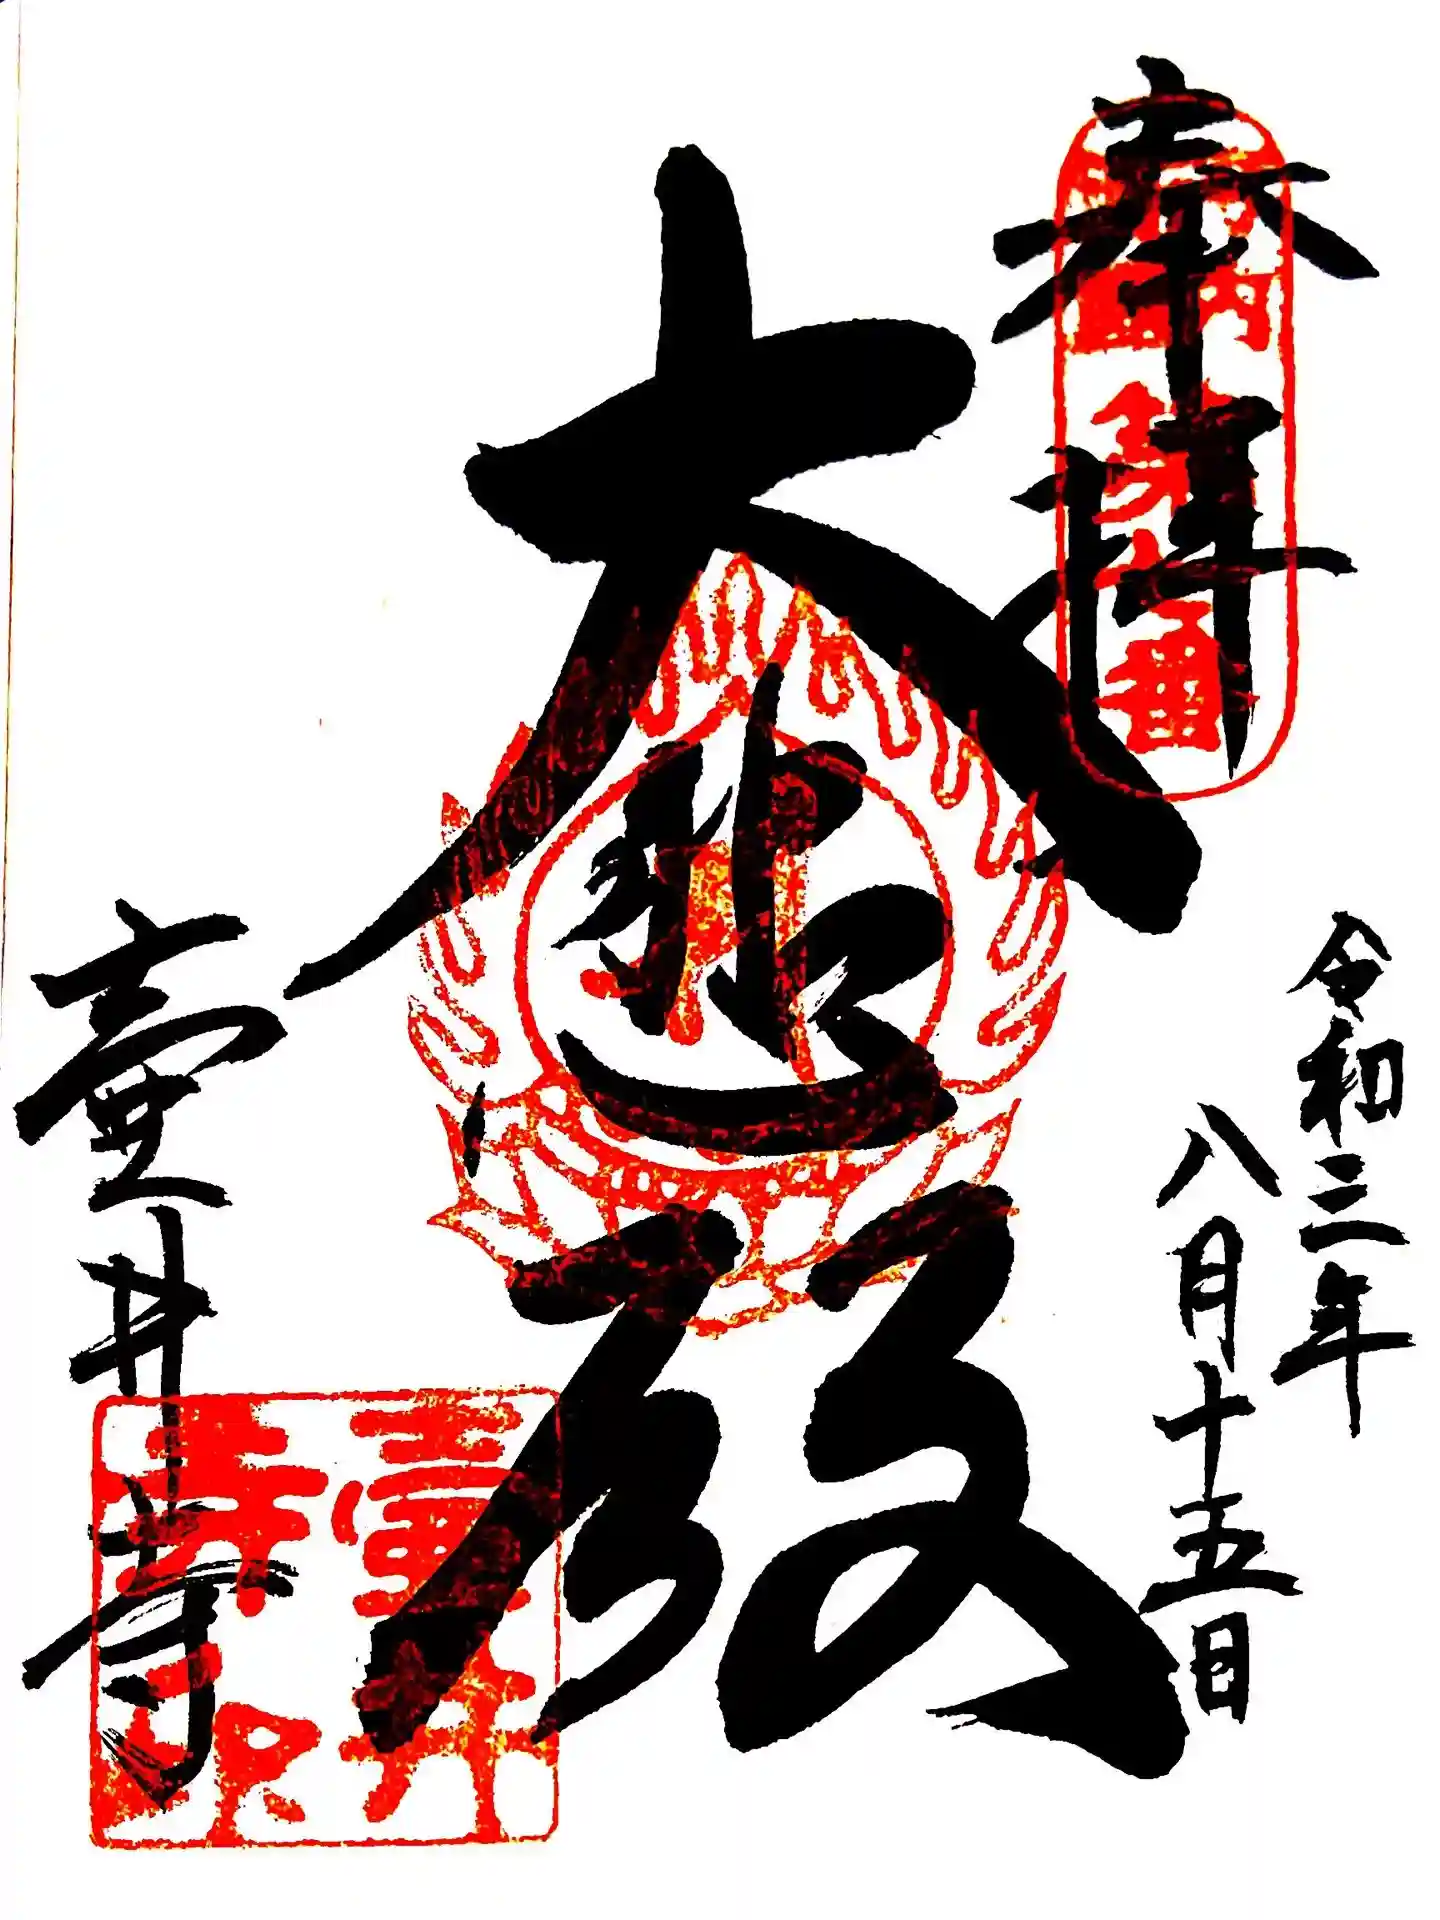 奉拝
令和三年
八月十五日
大悲殿
壺井寺
壺井
寺印